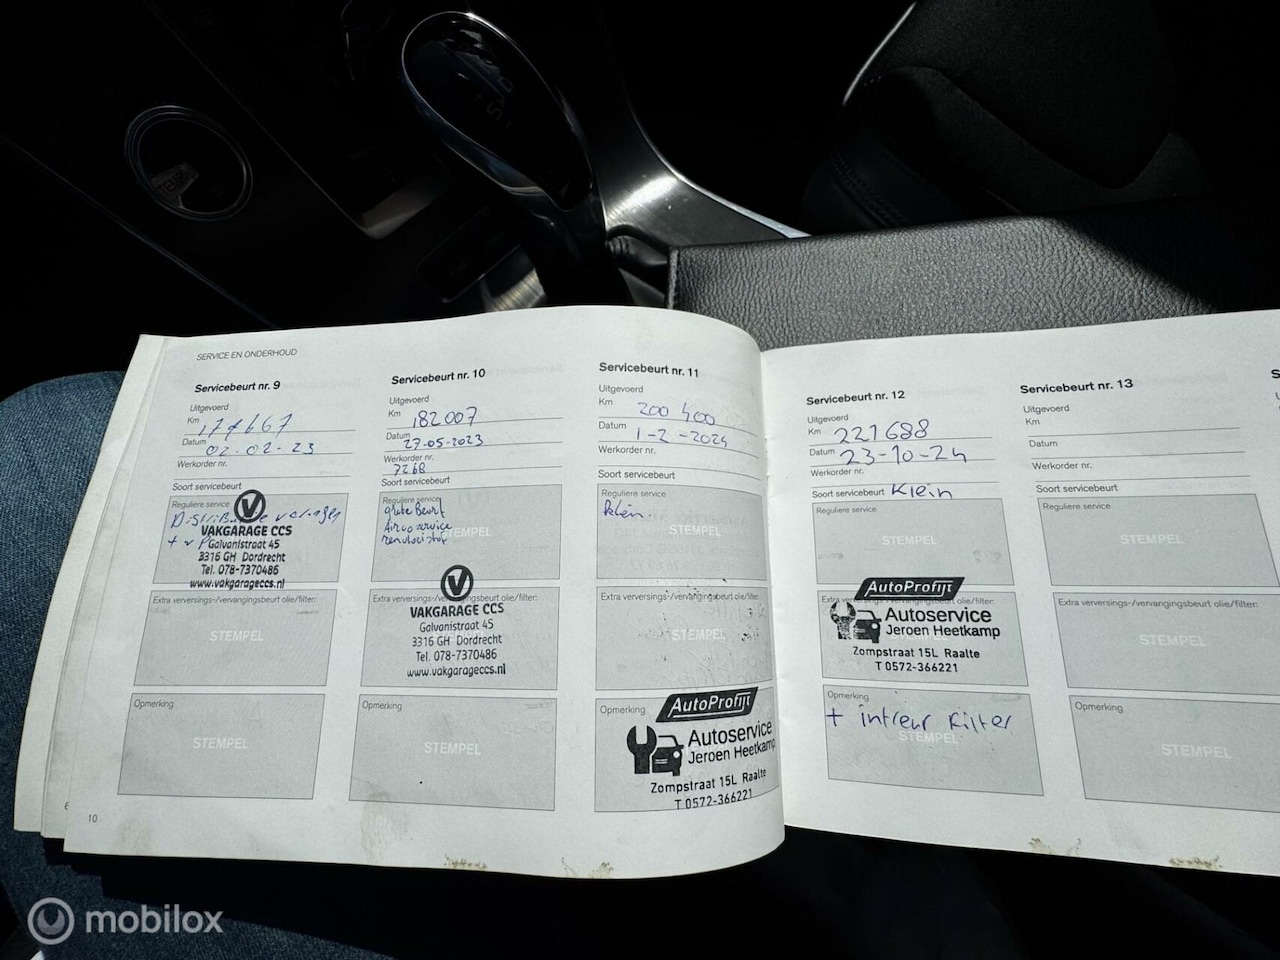 SERVICE EN ONDERHOUD
Servicebeurt nr. 9
Uitgevoerd
Km 177667
Datum 02-02-23
Werkorder nr.
Soort servicebeurt
Reguliere service
+
VAKGARAGE CCS
Galvanistraat 45
3316 GH Dordrecht
Tel. 078-7370486
www.vakgarageccs.nl
Extra verversings-/vervangingsbeurt olie/filter:
STEMPEL
Opmerking
STEMPEL
10
Servicebeurt nr. 10
Uitgevoerd
Km 182007
Datum 27-05-2023
Werkorder nr. 7268
Soort servicebeurt
Reguliere service
grote beurt
Airco service
STEMPEL
Extra verversings-/vervangingsbeurt olie/filter:
VAKGARAGE CCS
Galvanistraat 45
3316 GH Dordrecht
Tel. 078-7370486
www.vakgarageccs.nl
Opmerking
STEMPEL
Servicebeurt nr. 11
Uitgevoerd
Km 200400
Datum 1-2-2024
Werkorder nr.
Soort servicebeurt
Reguliere service
klein
STEMPEL
Extra verversings-/vervangingsbeurt olie/filter:
STEMPEL
Opmerking
AutoProfijt
Autoservice
Jeroen Heetkamp
Zompstraat 15L Raalte
T 0572-366221
Servicebeurt nr. 12
Uitgevoerd
Km 221688
Datum 23-10-24
Werkorder nr.
Soort servicebeurt Klein
Reguliere service
STEMPEL
Extra verversings-/vervangingsbeurt olie/filter:
AutoProfijt
Autoservice
Jeroen Heetkamp
STEMPEL
Zompstraat 15L Raalte
T 0572-366221
Opmerking
+ intreur filter
STEMPEL
Servicebeurt nr. 13
Uitgevoerd
Km
Datum
Werkorder nr.
Soort servicebeurt
Reguliere service
STEMPEL
Extra verversings-/vervangingsbeurt olie/filter:
STEMPEL
Opmerking
STEMPEL
mobilox